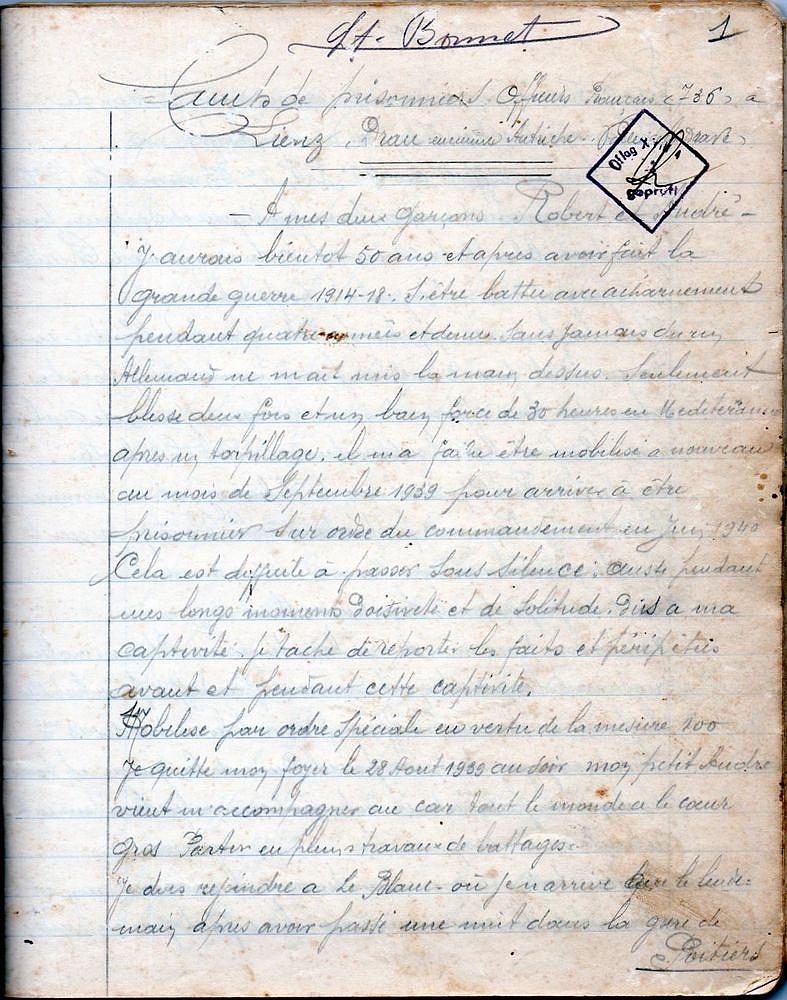 St. Bonnet
1
Camp de prisonniers Officiers Français (736) à
Lienz Drau ancienne Autriche
Oflag X A
geprüft
– A mes deux garçons Robert et André –
J'aurais bientot 50 ans et apres avoir fait la
grande guerre 1914-18. S'être battu avec acharnement
pendant quatre années et demie sans jamais qu'un
Allemand ne m'ait mis la main dessus. Seulement
blessé deux fois et un bain forcé de 30 heures en Mediteranée
apres un torpillage, il m'a fallu être mobilisé a nouveau
au mois de Septembre 1939 pour arriver à être
prisonnier sur ordre du commandement en Juin 1940
Cela est difficile à passer sous silence. aussi pendant
mes longs moments d'oisiveté et de solitude. dus a ma
captivité. Je tache de reporter les faits et péripéties
avant et pendant cette captivité.
Mobilisé par ordre spéciale en vertu de la mesure 100
Je quitte mon foyer le 28 Aout 1939 au soir mon petit André
vient m'accompagner au car tout le monde a le cœur
gros Partir en pleins travaux de battages.
Je dois rejoindre a Le Blanc - où je n'arrive que le lende-
main apres avoir passé une nuit dans la gare de
Poitiers